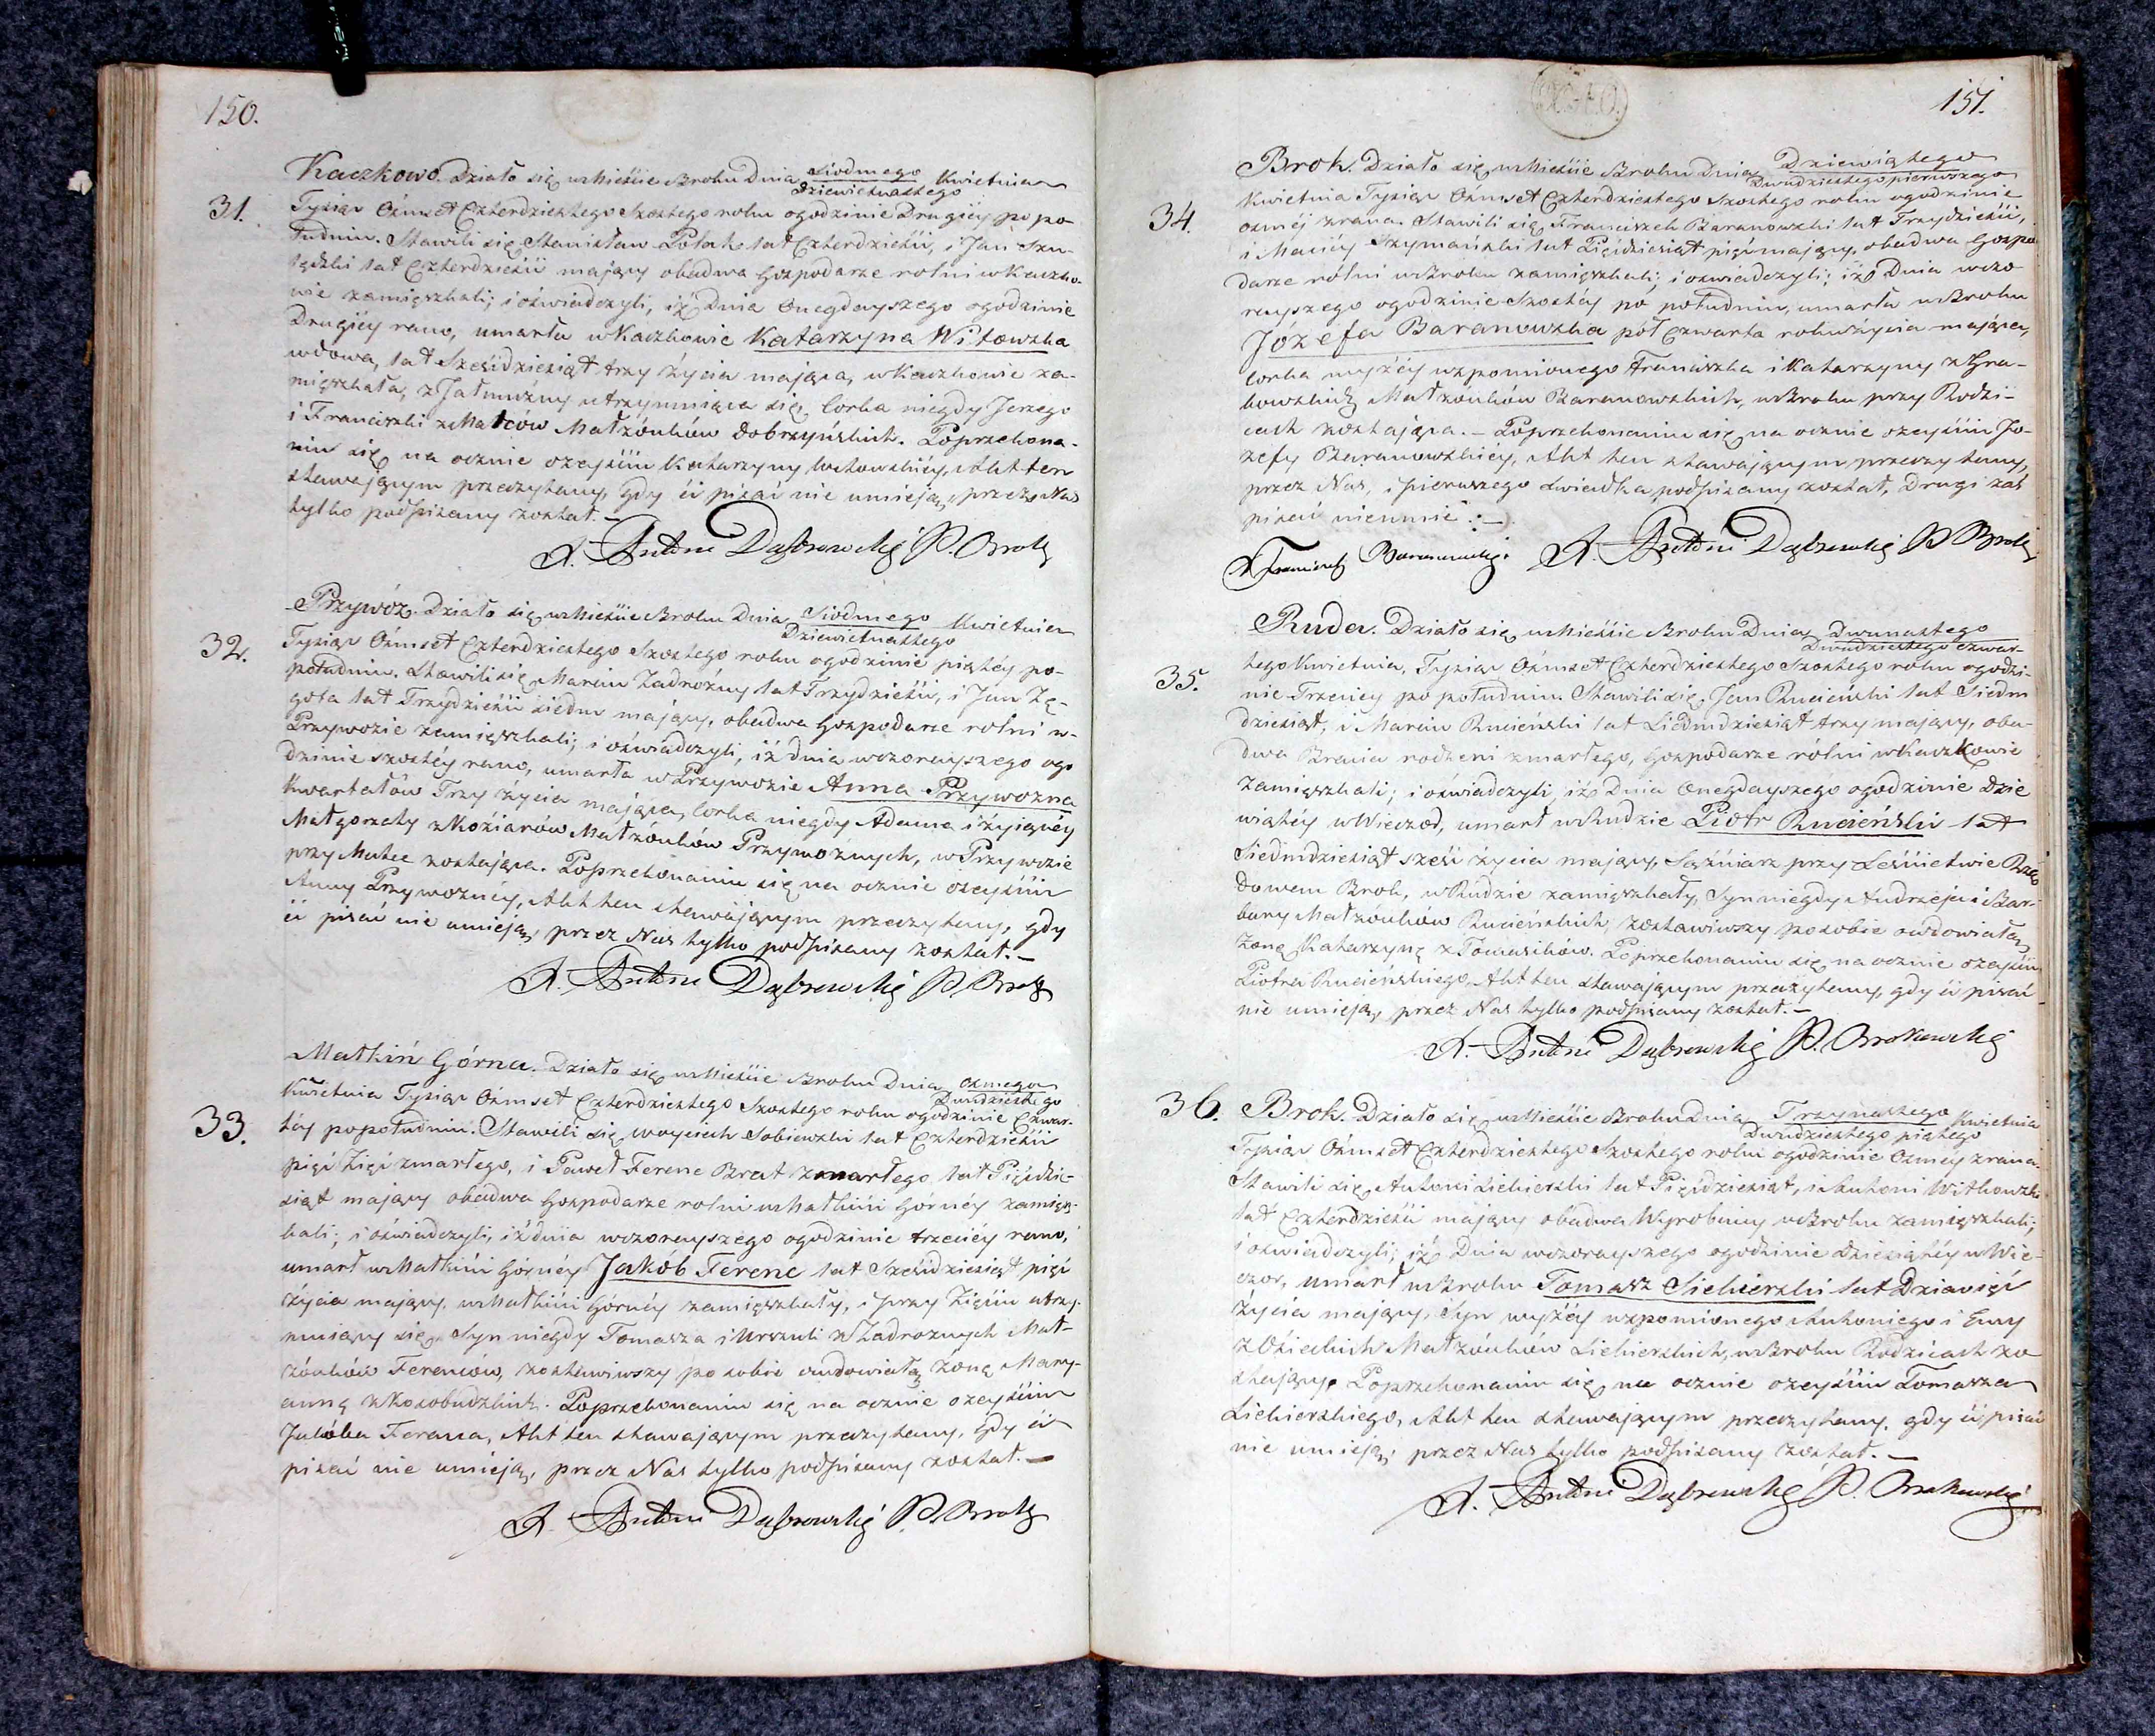 150.
Kaczkowo. Działo się w Mieście Broku Dnia Siódmego Kwietnia
Dziewiętnastego
31.
Tysiąc Ośmset Czterdziestego Szóstego roku o godzinie Drugiéy po po-
łudniu. Stawili się Stanisław Polak lat Czterdzieści, i Jan
lat Czterdzieści mający obadwa Gospodarze rolni w Kaczko-
wie zamięszkali; i oświadczyli, iż Dnia Onegdayszego o godzinie
Drugiéy rano, umarła w Kaczkowie Katarzyna Witowska
wdowa, lat Sześćdziesiąt trzy życia mająca, w Kaczkowie za-
mięszkała, z Jałmużny utrzymuiąca się, Corka niegdy Jerzego
i Franciszki z Małżonków Dobrzyńskich. Po przekona-
niu się na ocznie o zeyściu Katarzyny Witowskiéy, Akt ten
stawaiącym przeczytany, gdy ći pisać nie umieją, przez Nas
tylko podpisany został.–
X. Antoni Dąbrowski P. Brok
Przywóz. Działo się w Mieście Broku Dnia Siódmego Kwietnia
Dziewiętnastego
32.
Tysiąc Ośmset Czterdziestego Szóstego roku o godzinie piątéy po-
południu. Stawili się Marcin Zadrożny lat Trzydzieści, i Jan Zę-
gota lat Trzydzieści siedm mający, obadwa Gospodarze rolni w
Przywozie zamięszkali; i oświadczyli, iż dnia wczorayszego ogo
dzinie szóstéy rano, umarła w Przywozie Anna Przywozna
Kwartałów Trzy życia mająca, Corka niegdy Adama i żyiącéy
Małgorzaty z Koziarów Małżonków Przywoznych, w Przywozie
przy Matce zostająca. Po przekonaniu się na ocznie o zeyściu
Anny Przywoznéy, Akt ten stawaiącym przeczytany, gdy
ći pisać nie umieją, przez Nas tylko podpisany został.–
X. Antoni Dąbrowski P. Brok
Małkiń Górna. Działo się w Mieście Broku Dnia Ósmego
Dwudziestego
33.
Kwietnia Tysiąc Ośmset Czterdziestego Szóstego roku o godzinie Czwar-
téy po południu. Stawili się Woyciech Sobiewski lat Czterdzieści
pięć Zięć zmarłego, i Paweł Ferenc Brat zmarłego, lat Pięćdzie-
siąt mający obadwa Gospodarze rolni w Małkini Górnéy zamięsz-
kali; i oświadczyli, iż dnia wczorayszego o godzinie trzeciéy rano,
umarł w Małkini Górnéy Jakób Ferenc lat Sześćdziesiąt pięć
życia mający, w Małkini Górnéy zamięszkały, i przy Zięciu utrzy-
muiący się, Syn niegdy Tomasza i Urszuli z Zadrożnych Mał-
żonków Ferenców, zostawiwszy po sobie owdowiałą żonę Mary-
annę z Kosobudzkich. Po przekonaniu się na ocznie o zeyściu
Jakóba Ferenca, Akt ten stawaiącym przeczytany, gdy ći
pisać nie umieją, przez Nas tylko podpisany został.–
X. Antoni Dąbrowski P. Brok
151.
Brok. Działo się w Mieście Broku Dnia Dziewiątego
Dwudziestego pierwszego
34.
Kwietnia Tysiąc Ośmset Czterdziestego Szóstego roku o godzinie
osméy zrana. Stawili się Franciszek Baranowski lat Trzydzieści,
i Maciéy Szymański lat Pięćdziesiąt pięć mający, obadwa Gospo
darze rolni w Broku zamięszkali; i oświadczyli; iż Dnia wczo
rayszego o godzinie Szóstéy po południu, umarła w Broku
Józefa Baranowska pół czwarta roku życia mająca,
Corka wyżéy wspomionego Franciszka i Katarzyny z Gra-
bowskich Małżonków Baranowskich, w Broku przy Rodzi-
cach zostająca.– Po przekonaniu się na ocznie o zeyściu Jó-
zefy Baranowskiéy, Akt ten stawaiącym przeczytany,
przez Nas, i pierwszego świadka podpisany został, Drugi zaś
pisać nieumié.–
Franciszek Baranowski. X. Antoni Dąbrowski P Brok
Ruda. Działo się w Mieście Broku Dnia Dwunastego
Dwudziestego czwar-
35.
tego Kwietnia, Tysiąc Ośmset Czterdziestego Szóstego roku o godzi-
nie Trzeciéy po południu. Stawili się, Jan Rucieński lat Siedm
dziesiąt, i Marcin Rucieński lat Siedmdziesiąt trzy mający, oba-
dwa Bracia rodzeni zmarłego, Gospodarze rolni w Kaczkowie
zamięszkali; i oświadczyli, iż Dnia Onegdayszego o godzinie Dzie
wiątéy w Wieczod, umarł w Rudzie Piotr Rucieński lat
Siedmdziesiąt sześć życia mający, Sążniarz przy Leśnictwie Rzą
dowem Brok, w Rudzie zamięszkały, Syn niegdy Andrzeja i Bar-
bary Małżonków Rucieńskich, zostawiwszy po sobie owdowiałą
żonę Katarzynę z Tomasików. Po przekonaniu się na ocznie o zeyściu
Piotra Rucieńskiego, Akt ten stawaiącym przeczytany, gdy ći pisać
nie umieją, przez Nas tylko podpisany został.–
X. Antoni Dąbrowski P. Brokowski
36.
Brok. Działo się w Mieście Broku Dnia Trzynastego Kwietnia
Dwudziestego piątego
Tysiąc Ośmset Czterdziestego Szóstego roku o godzinie Osméy zrana.
Stawili się Antoni Siekierski lat Pięćdziesiąt, i Antoni Witkowski
lat Czterdzieści mający obadwa Wyrobnicy w Broku zamięszkali;
i oświadczyli; iż Dnia wczorayszego o godzinie Dziesiątéy w Wie-
czor, umarł w Broku Tomasz Siekierski lat Dziewięć
życia mający, Syn wyżéy wspomionego Antoniego i Ewy
z Małżonków Siekierskich, w Broku Rodzicach zo
stający. Po przekonaniu się na ocznie o zeyściu Tomasza
Siekierskiego, Akt ten stawaiącym przeczytany, gdy ći pisać
nie umieją, przez Nas tylko podpisany został.–
X. Antoni Dąbrowski P. Brokowski